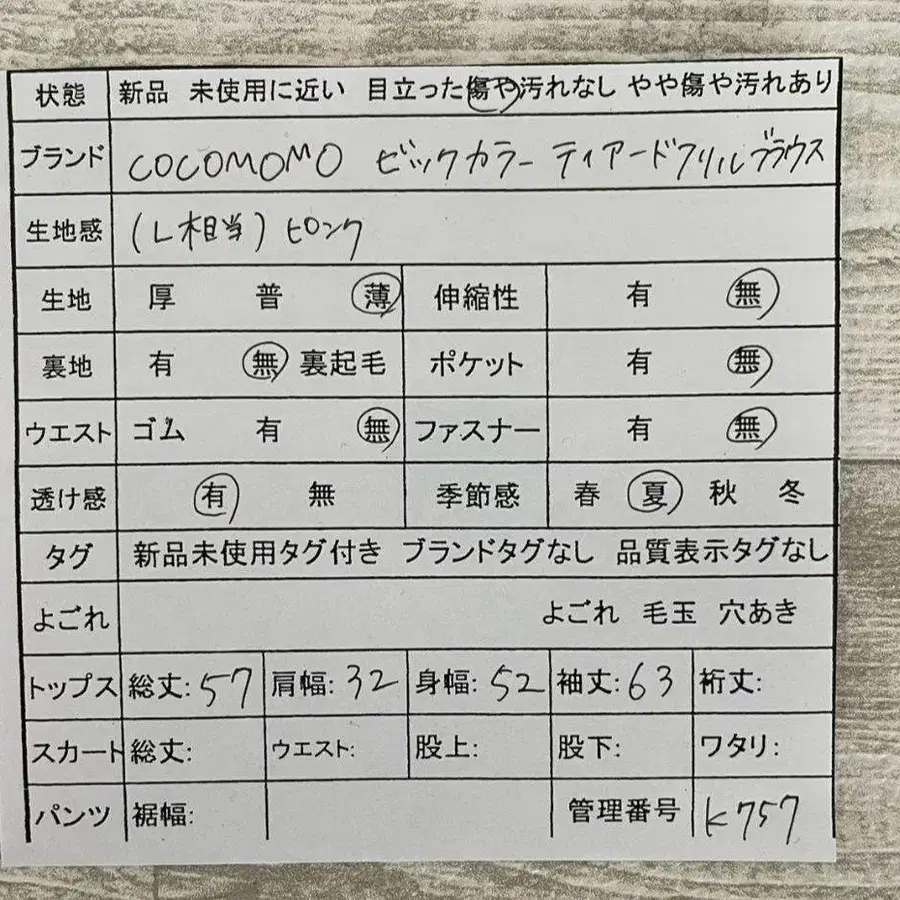 状態 新品 未使用に近い 目立った傷や汚れなし やや傷や汚れあり
ブランド COCOMOMO ビックカラー ティアードフリルブラウス
生地感 (L相当) ピンク
生地 厚 普 薄 伸縮性 有 無
裏地 有 無 裏起毛 ポケット 有 無
ウエスト ゴム 有 無 ファスナー 有 無
透け感 有 無 季節感 春 夏 秋 冬
タグ 新品未使用タグ付き ブランドタグなし 品質表示タグなし
よごれ よごれ 毛玉 穴あき
トップス 総丈: 57 肩幅: 32 身幅: 52 袖丈: 63 裄丈:
スカート 総丈: ウエスト: 股上: 股下: ワタリ:
パンツ 裾幅: 管理番号 K757